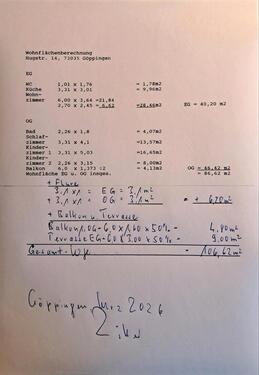 Wohnflächenberechnung
Hugstr. 14, 73035 Göppingen
EG
WC 1,01 x 1,76 = 1,78m2
Küche 3,31 x 3,01 = 9,96m2
Wohn-
zimmer 6,00 x 3,64 =21,84
2,70 x 2,45 = 6,62 =28,46m2 EG = 40,20 m2
OG
Bad 2,26 x 1,8 = 4,07m2
Schlaf-
zimmer 3,31 x 4,1 =13,57m2
Kinder-
zimmer 1 3,31 x 5,03 =16,65m2
Kinder-
zimmer 2 2,26 x 3,15 = 8,00m2
Balkon 6,0 x 1,373 :2 = 4,13m2 OG = 46,42 m2
Wohnfläche EG u. OG insges. = 86,62 m2
+ Flure
3.1 x 1 = EG = 3.1 m²
+ 3,1 x 1 = OG = 3.1 m² = + 6,20 m²
+ Balkon u Terrasse
Balkon 1.OG - 6,0 x 1,60 x 50% - 4.80 m²
Terrasse EG - 6,0 x 3.00 x 50% - 9.00 m²
Gesamt - 106,62 m²
Göppingen 2026